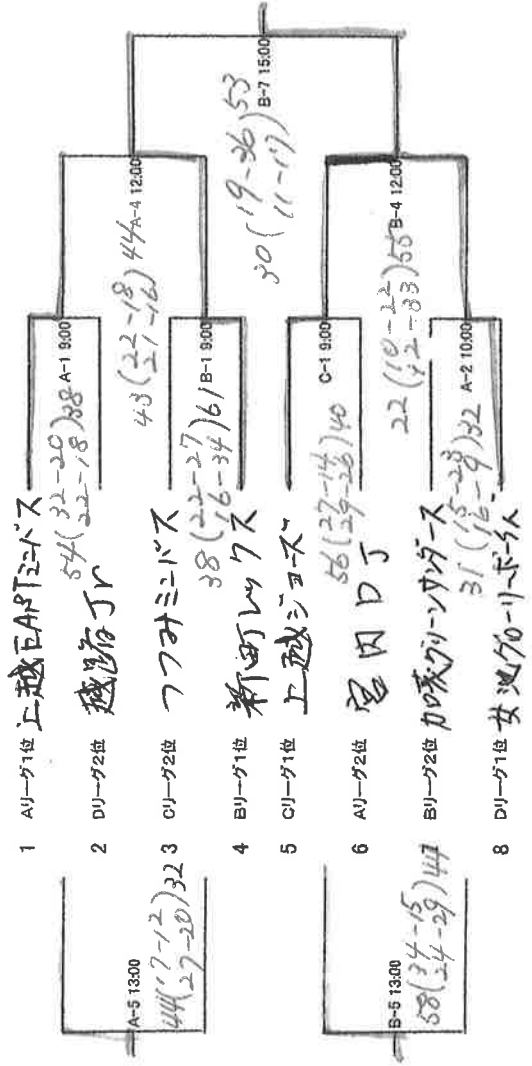 1 Aリーグ1位 上越EASTミニバス
2 Dリーグ2位 越路Jr
3 Cリーグ2位 つつみミニバス
4 Bリーグ1位 新町レックス
5 Cリーグ1位 上越ジョーズ
6 Aリーグ2位 宮内DJ
7 Bリーグ2位 加茂グリーンサンダース
8 Dリーグ1位 女池グローリーボーイズ
A-1 9:00
54(32-20 22-18)38
B-1 9:00
38(22-27 16-34)61
C-1 9:00
56(27-14 29-26)40
A-2 10:00
31(15-23 16-9)32
A-4 12:00
43(22-18 21-16)44
B-4 12:00
22(10-22 12-33)55
B-7 15:00
30(19-36 11-17)53
A-5 13:00
44(17-12 27-20)32
B-5 13:00
58(34-15 24-29)44